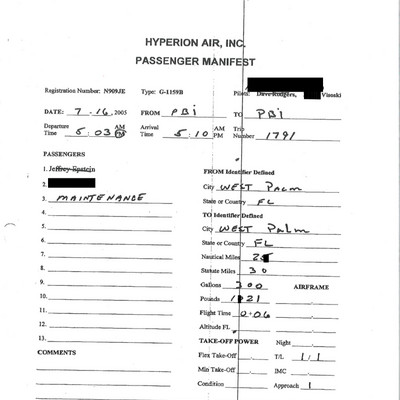 HYPERION AIR, INC.
PASSENGER MANIFEST
Registration Number: N909JE Type: G-1159B Pilots: Dave Rodgers, Visoski
DATE: 7-16, 2005 FROM PBI TO PBI
Departure Time 5:03 AM PM Arrival Time 5:10 AM PM Trip Number 1791
PASSENGERS
1. Jeffrey Epstein
2.
3. MAINTENANCE
4.
5.
6.
7.
8.
9.
10.
11.
12.
13.
COMMENTS
FROM Identifier Defined
City WEST Palm
State or Country FL
TO Identifier Defined
City WEST Palm
State or Country FL
Nautical Miles
Statute Miles 30
Gallons 300 AIRFRAME
Pounds
Flight Time 0+06
Altitude FL
TAKE-OFF POWER Night
Flex Take-Off T/L 1/1
Min Take-Off IMC
Condition Approach 1